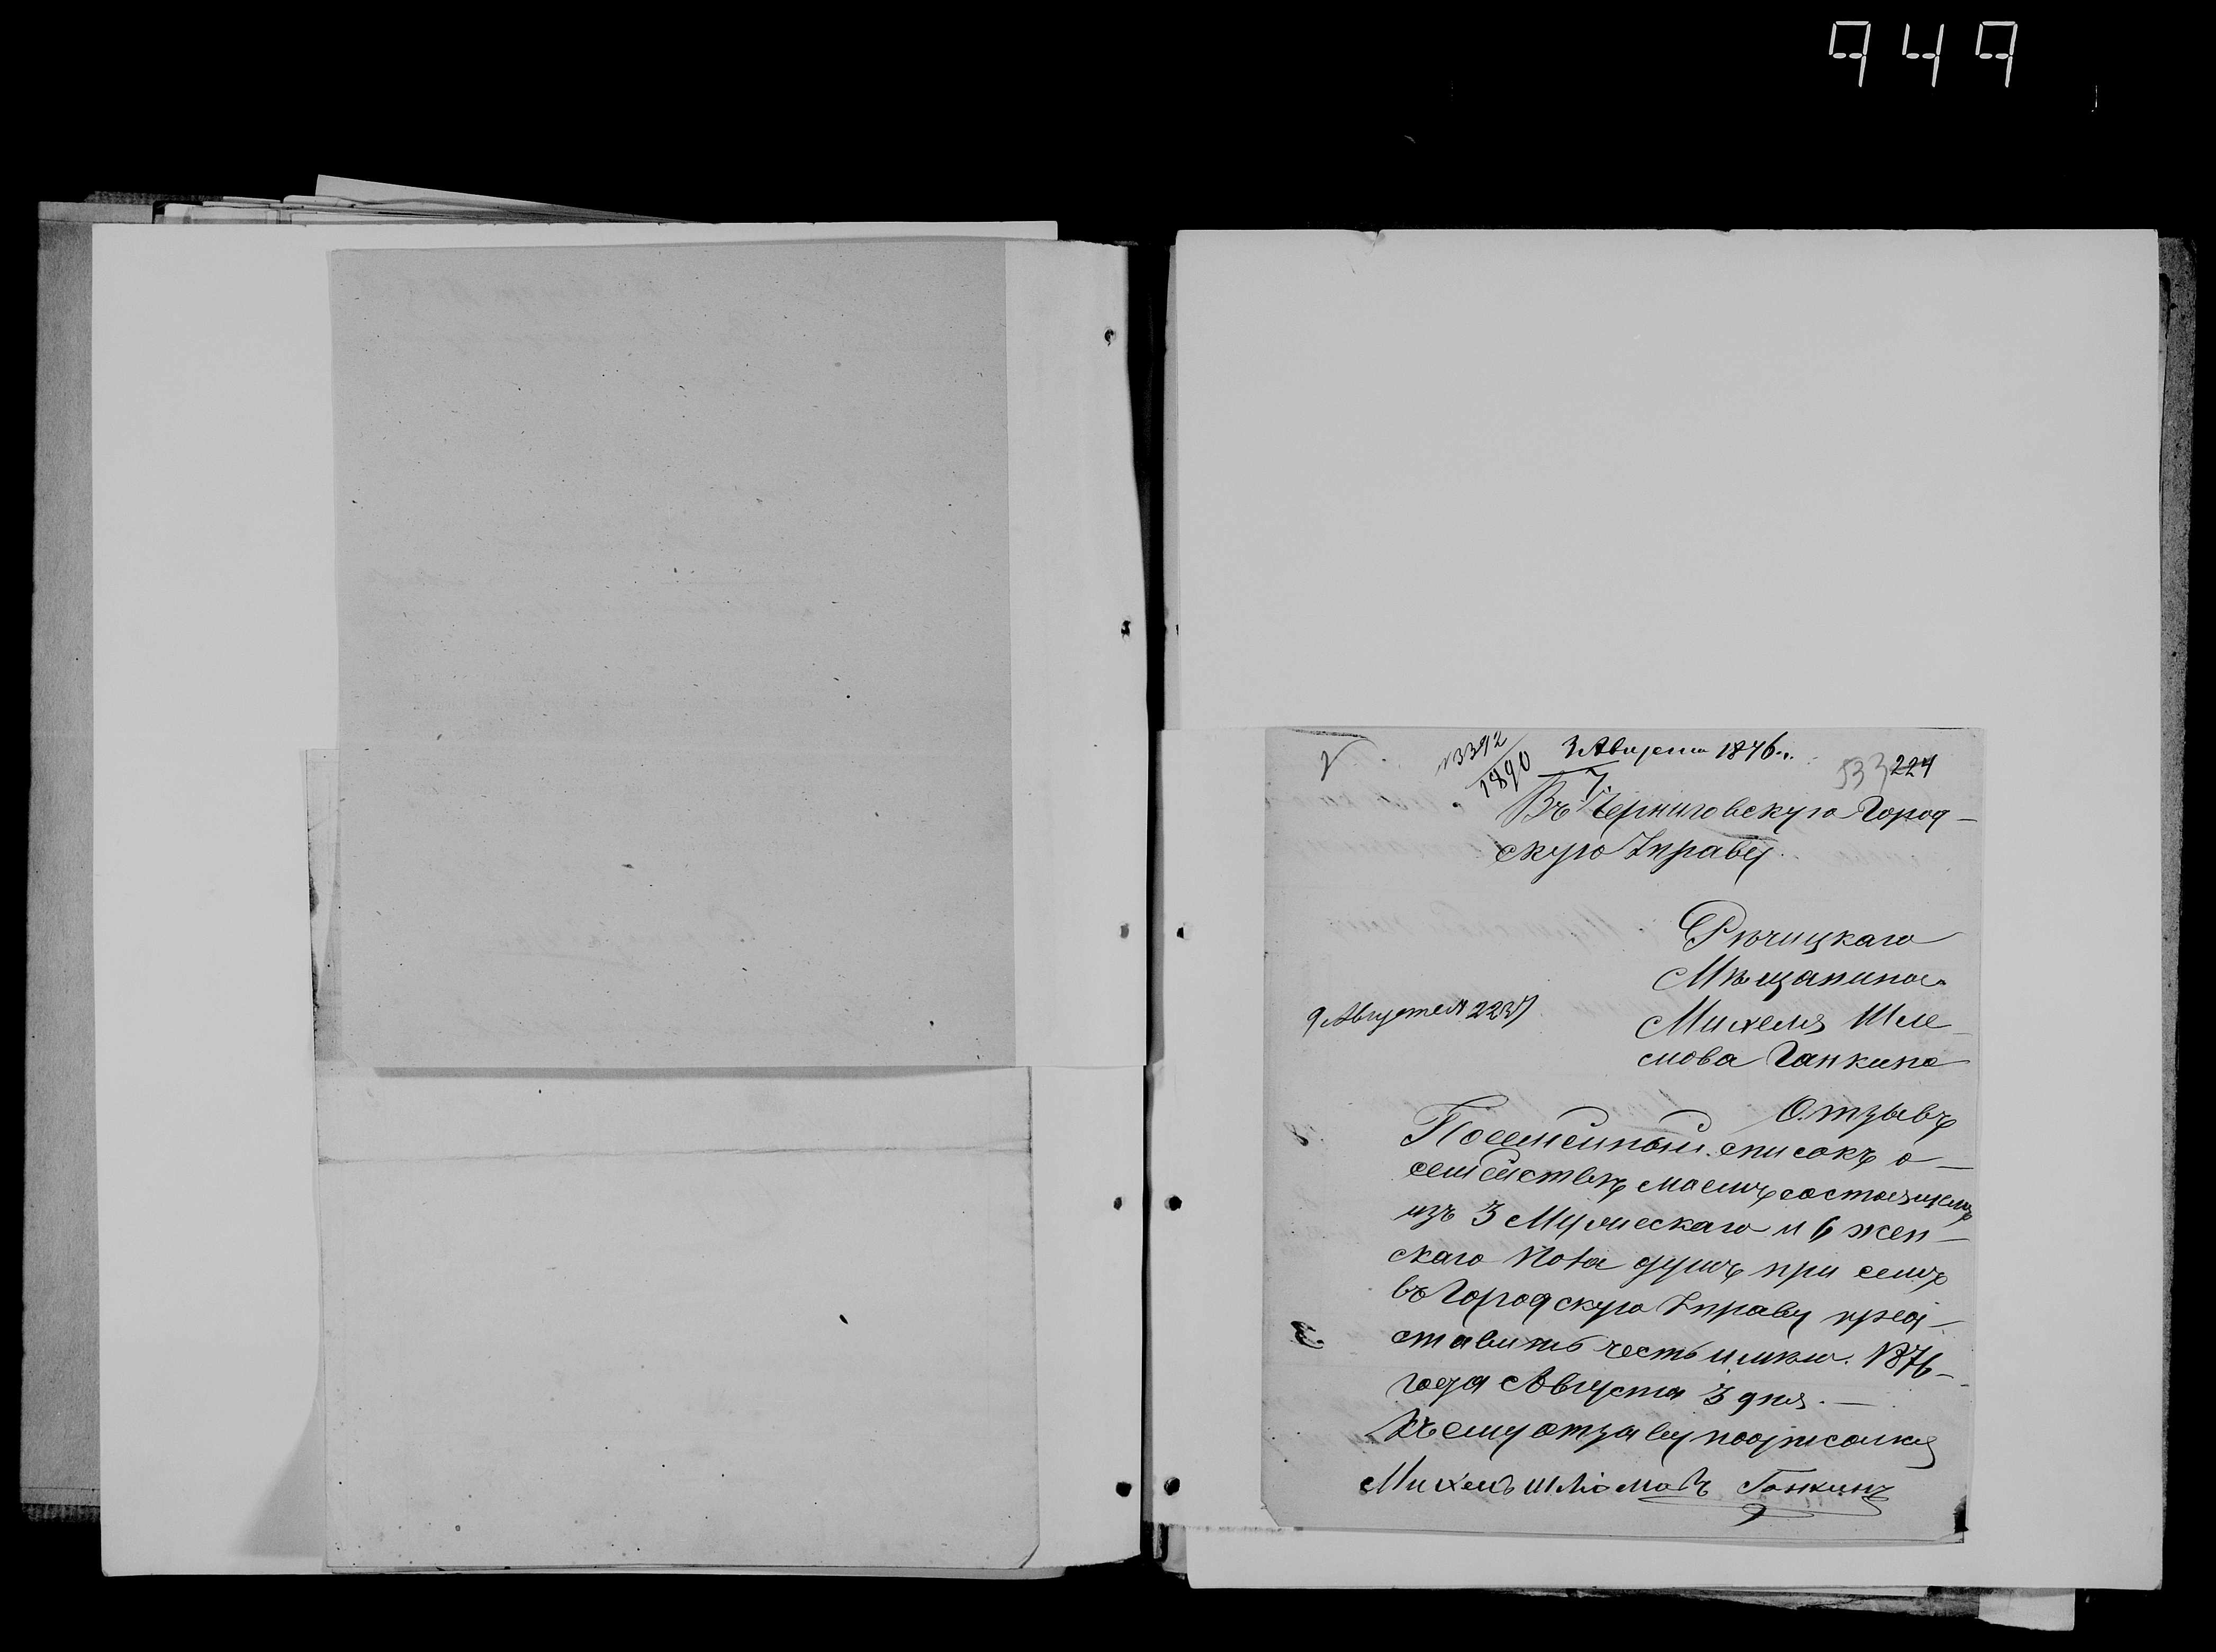 949
№3392
1890
3 Августа 1876 г.
7.
533 224
Въ Черниговскую Город-
скую Управу.
Рѣчицкаго
Мѣщанина
9 Августа № 2237
Михеля Шле-
мова Ганкина
Отзывъ
Посемейный списокъ о
семействѣ моемъ состоящемъ
изъ 3 Мужескаго и 6 жен-
скаго пола душъ при семъ
въ Городскую Управу пред-
ставить честь имѣю. 1876
года Августа 3 дня.
Къ сему отзыву подписался
Михель Шліомовъ Ганкинъ